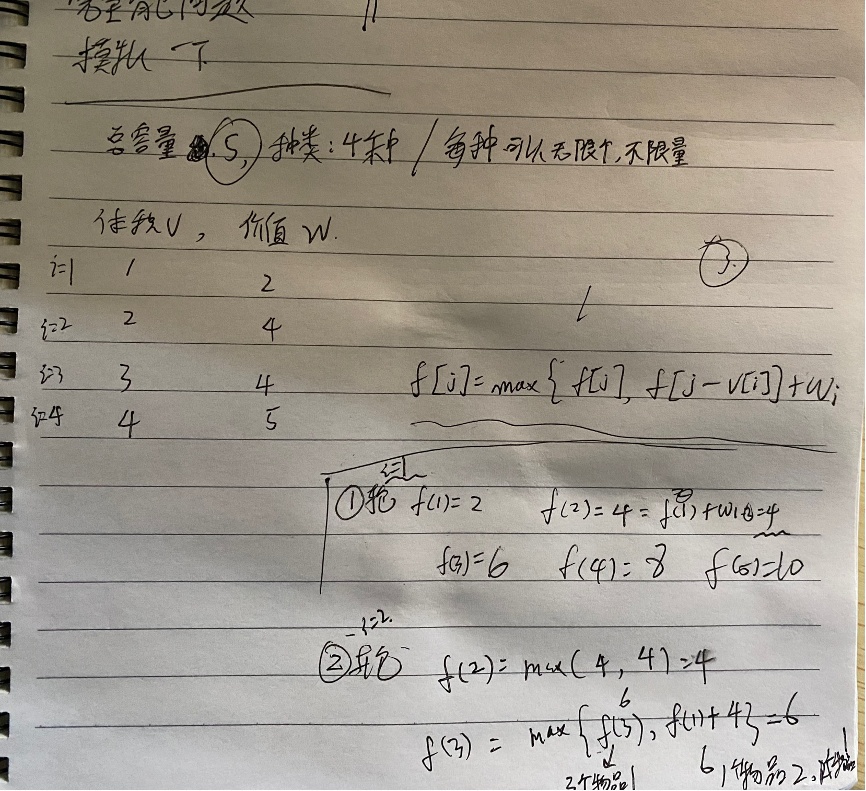 模拟一下
总容量 5, 种类:4种 / 每种可以无限个,不限量
体积V, 价值W.
3.
i=1 1 2
i=2 2 4
i=3 3 4
i=4 4 5
f[j]=max{f[j], f[j-v[i]]+wi
i=1
①轮 f(1)=2 f(2)=4=f(1)+w1=4
f(3)=6 f(4)=8 f(5)=10
i=2.
②轮 f(2)=max(4,4)=4
6
f(3)=max{f(3),f(1)+4}=6
3个物品1 6,1个物品2,